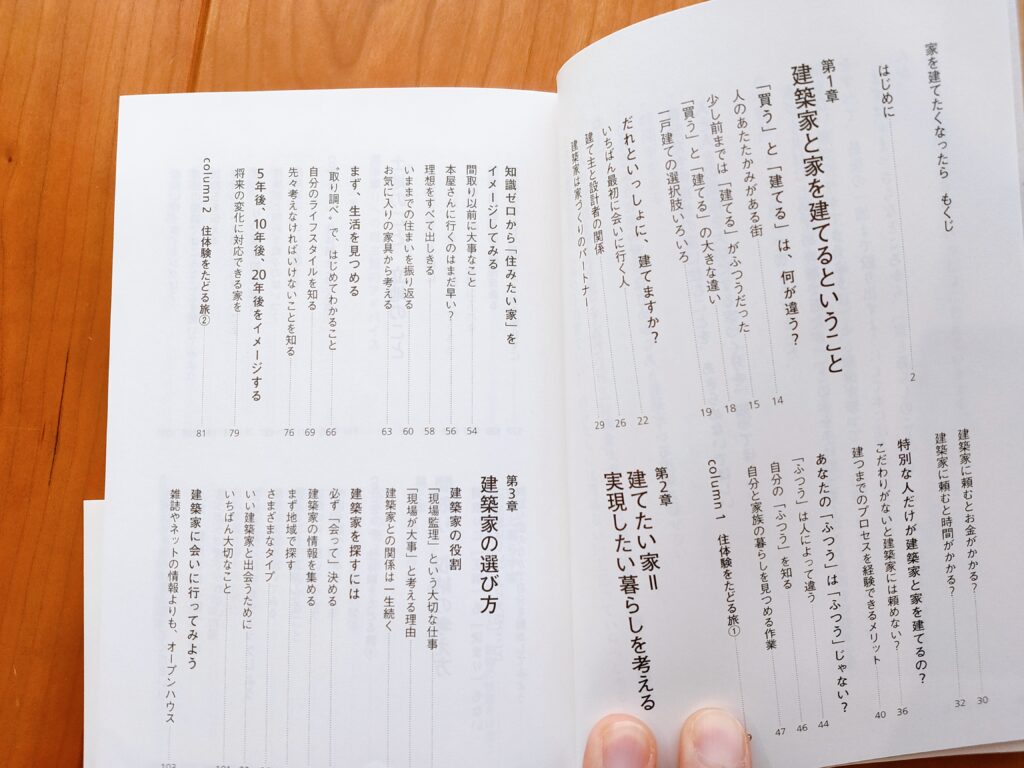 家を建てたくなったら もくじ
はじめに 2
第1章
建築家と家を建てるということ
「買う」と「建てる」は、何が違う? 14
人のあたたかみがある街 15
少し前までは「建てる」がふつうだった 18
「買う」と「建てる」の大きな違い 19
一戸建ての選択肢いろいろ
だれといっしょに、建てますか? 22
いちばん最初に会いに行く人 26
建て主と設計者の関係 29
建築家は家づくりのパートナー
建築家に頼むとお金がかかる? 30
建築家に頼むと時間がかかる? 32
特別な人だけが建築家と家を建てるの? 36
こだわりがないと建築家には頼めない? 40
建つまでのプロセスを経験できるメリット
あなたの「ふつう」は「ふつう」じゃない? 44
「ふつう」は人によって違う 46
自分の「ふつう」を知る 47
自分と家族の暮らしを見つめる作業
column 1 住体験をたどる旅①
第2章
建てたい家=
実現したい暮らしを考える
知識ゼロから「住みたい家」を
イメージしてみる
間取り以前に大事なこと 54
本屋さんに行くのはまだ早い? 56
理想をすべて出しきる 58
いままでの住まいを振り返る 60
お気に入りの家具から考える 63
まず、生活を見つめる
“取り調べ”で、はじめてわかること 66
自分のライフスタイルを知る 69
先々考えなければいけないことを知る 76
5年後、10年後、20年後をイメージする
将来の変化に対応できる家を 79
column 2 住体験をたどる旅② 81
第3章
建築家の選び方
建築家の役割
「現場監理」という大切な仕事
「現場が大事」と考える理由
建築家との関係は一生続く
建築家を探すには
必ず「会って」決める
建築家の情報を集める
まず地域で探す
さまざまなタイプ
いい建築家と出会うために
いちばん大切なこと
建築家に会いに行ってみよう
雑誌やネットの情報よりも、オープンハウス